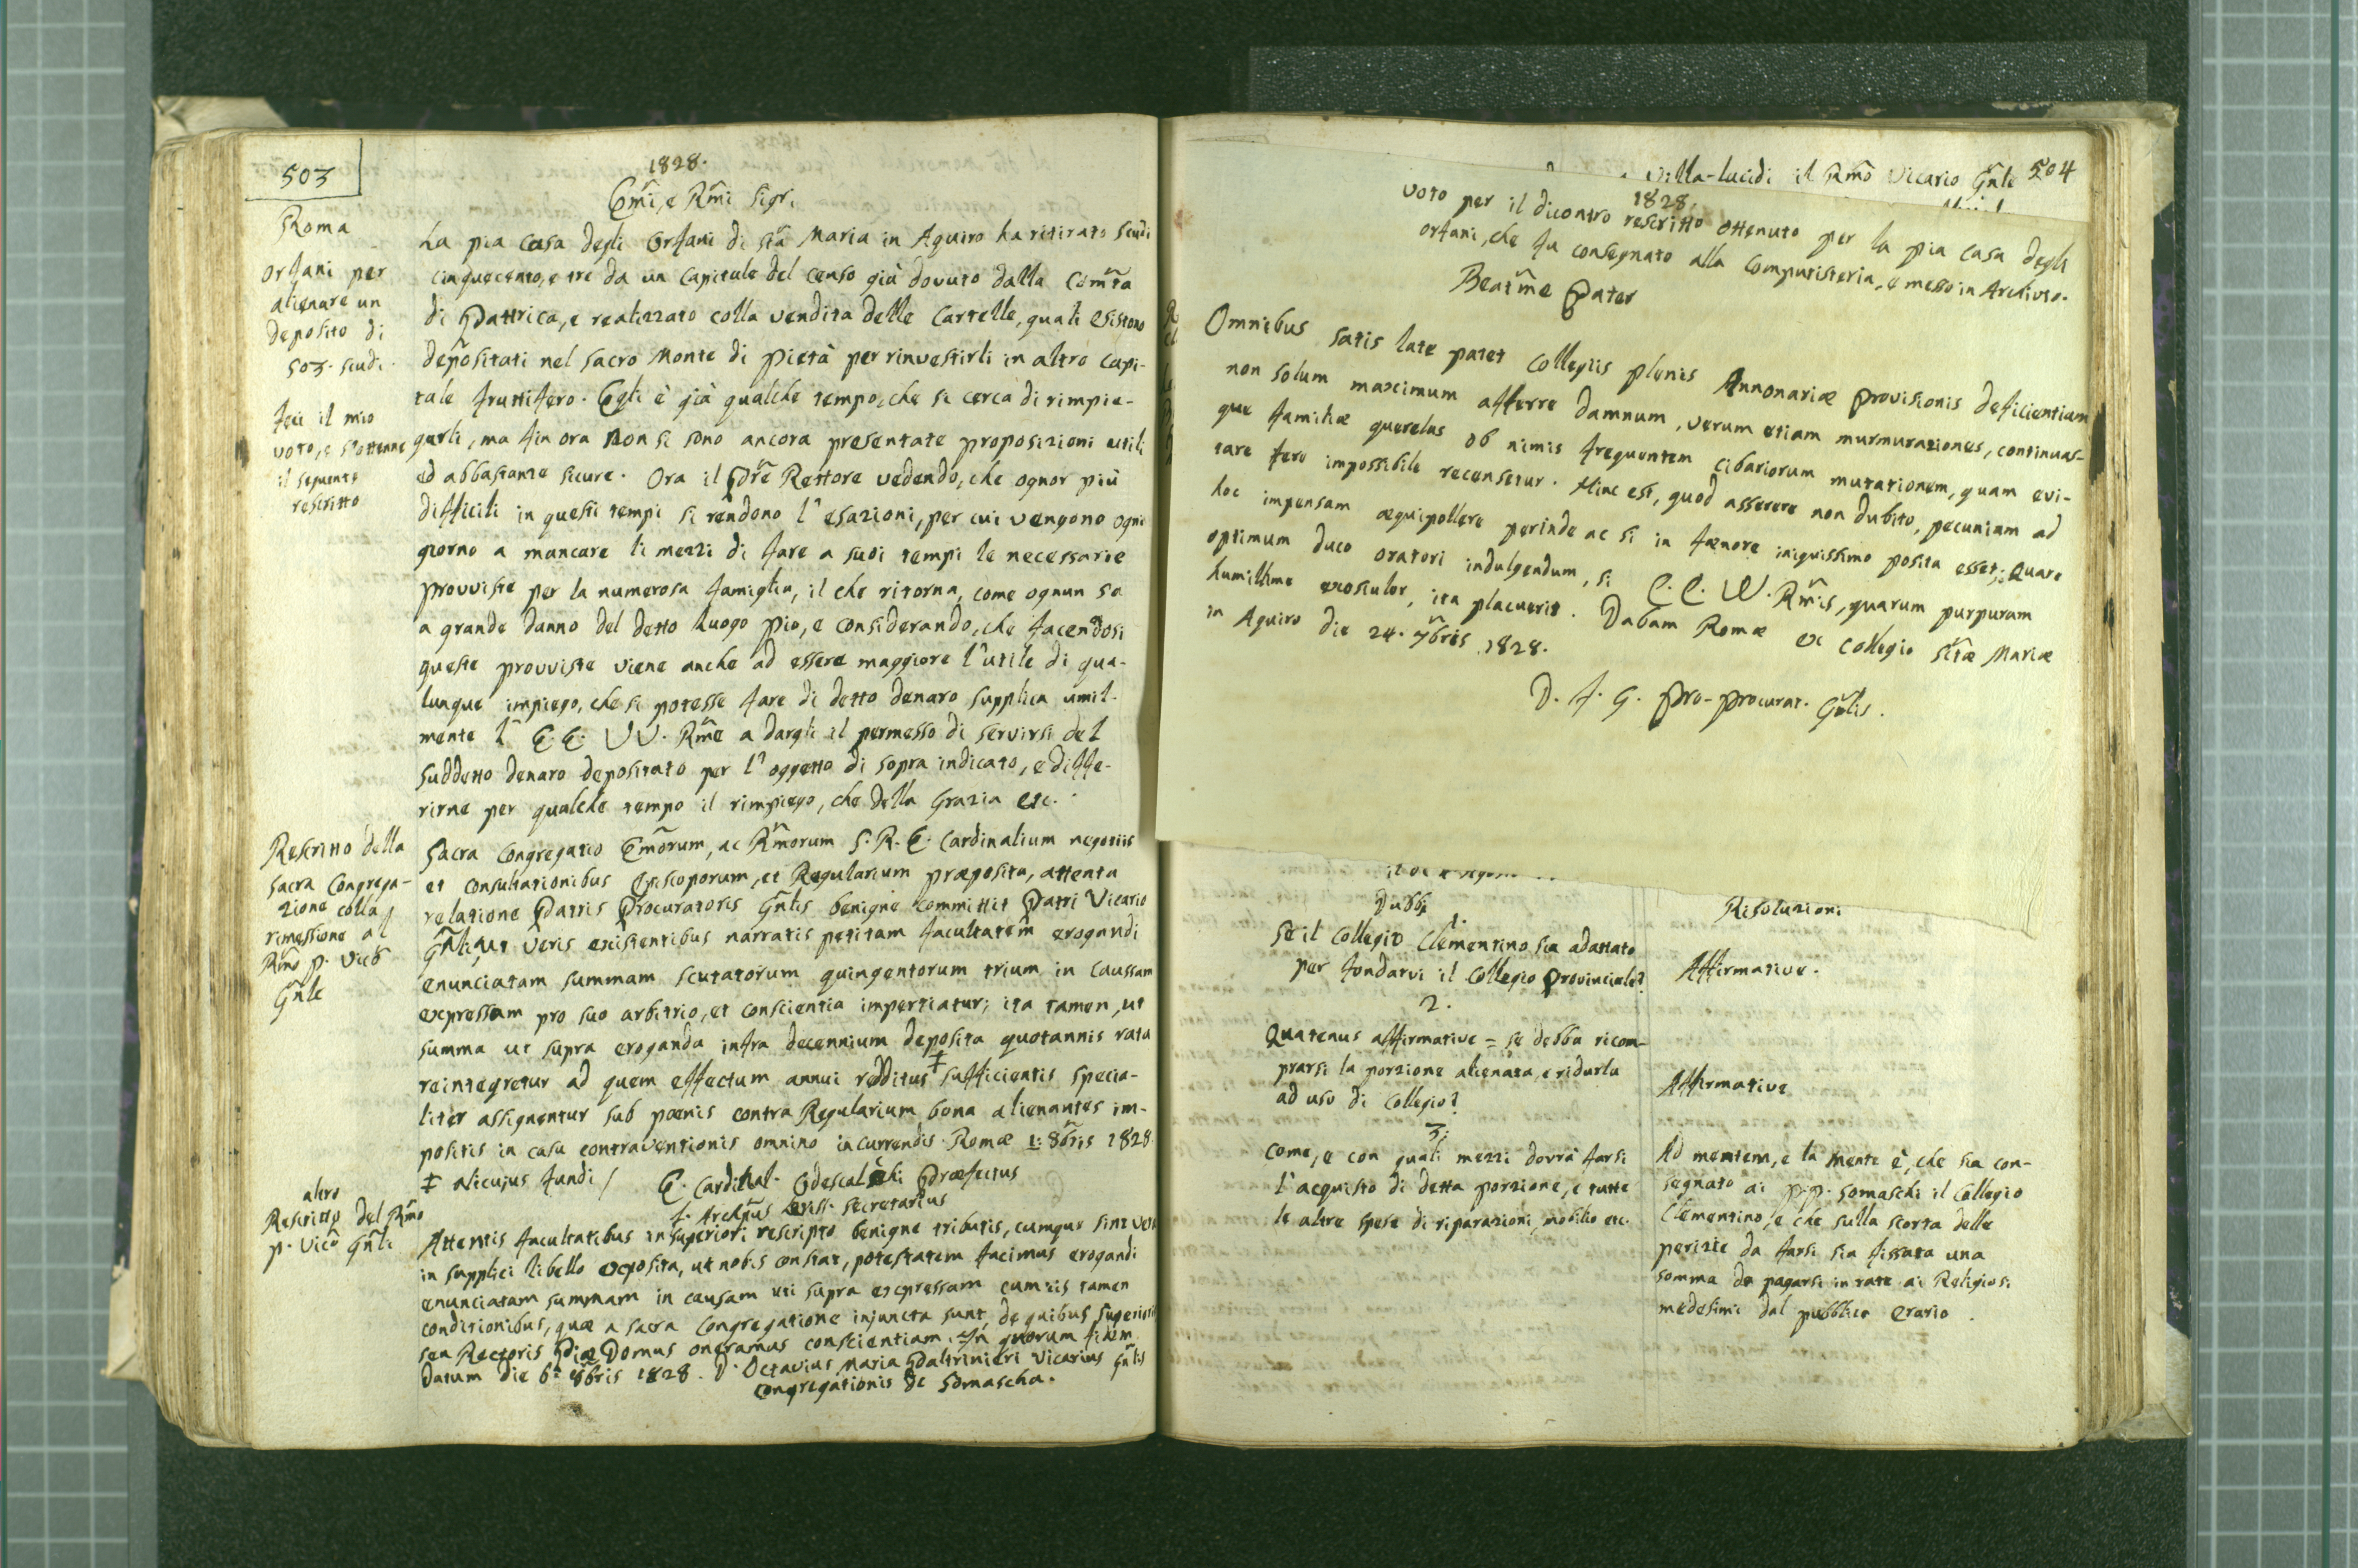 503
1828.
Em̃i, e Rm̃i Sigr.i
Roma
Orfani per
alienare un
deposito di
503. scudi.
feci il mio
voto, e s'ottenne
il seguente
rescritto
La pia Casa degli Orfani di Stã Maria in Aquiro ha ritirato Scudi
cinquecento, e tre da un Capitale del Censo già dovuto dalla Com̃tà
di Pattrica, e realizzato colla vendita delle Cartelle, quali esistono
depositati nel Sacro Monte di Pietà per rinvestirli in altro capi-
tale fruttifero. Egli è già qualche tempo, che si cerca di rimpie-
garli, ma fin ora non si sono ancora presentate proposizioni utili
ed abbastanza sicure. Ora il Pr̃e Rettore vedendo, che ognor più
difficili in questi tempi si rendono l'esazioni, per cui vengono ogni
giorno a mancare li mezzi di fare a suoi tempi le necessarie
provviste per la numerosa famiglia, il che ritorna, come ognun sa
a grande danno del detto Luogo pio, e considerando, che facendosi
queste provviste viene anche ad essere maggiore l'utile di qua-
lunque impiego, che si potesse fare di detto denaro supplica umil-
mente l'E.E. VV. Rm̃e a dargli il permesso di servirsi del
suddetto denaro depositato per l'oggetto di sopra indicato, e diffe-
rirne per qualche tempo il rimpiego, che della Grazia etc.
Rescritto della
Sacra Congrega-
zione colla
rimessione al
Rm̃o P. Vicõ
Gñle
Sacra Congregatio Em̃orum, ac Rm̃orum S. R. E. Cardinalium negotiis
et consultationibus Episcoporum, et Regularium præposita, attenta
relatione Patris Procuratoris Gñlis benigne committit Patri Vicario
Gñli, ut veris existentibus narratis petitam facultatem erogandi
enunciatam summam scutatorum quingentorum trium in caussam
expressam pro suo arbitrio, et conscientia impertiatur; ita tamen, ut
summa ut supra eroganda infra decennium deposita quotannis rata
reintegretur ad quem effectum annui redditus ‡ sufficientis specia-
liter assignentur sub pœnis contra Regularium bona alienantes im-
positis in casu contraventionis omnino incurrendis. Romæ 1: 8bris 1828
‡ alicujus fundi / E. Cardinal. Odescalchi Præfectus
Secretarius
altro
Rescritto del Rm̃o
P. Vicõ Gñle
Attentis facultatibus in superiori rescripto benigne tributis, cumque sint vera
in supplici libello exposita, ut nobis constat, potestatem facimus erogandi
enunciatam summam in causam uti supra expressam cum iis tamen
conditionibus, quæ a sacra Congregatione injuncta sunt, de quibus Superioris
seu Rectoris Piæ Domus oneramus conscientiam. In quorum fidem
Datum die 6ª 8bris 1828. D. Octavius Maria Paltrinieri Vicarius Gñlis
Congregationis de Somascha.
Villa-lucidi il Rm̃o Vicario Gñle 504
1828.
Voto per il dicontro rescritto ottenuto per la pia Casa degli
orfani, che fu consegnato alla Computisteria, e messo in Archivio.
Beatm̃e Pater
Omnibus satis late patet Collegiis plenis Annonariæ provisionis deficientiam
non solum maximum afferre damnum, verum etiam murmurationes, continuas-
que familiæ querelas ob nimis frequentem cibariorum mutationem, quam evi-
tare fere impossibile recensetur. Hinc est, quod asserere non dubito, pecuniam ad
hoc impensam æquipollere perinde ac si in fœnore iniquissimo posita esset; Quare
optimum duco oratori indulgendum, si E. E. VV. Rm̃is, quarum purpuram
humillime exosculor, ita placuerit. Dabam Romæ ex Collegio Stæ Mariæ
in Aquiro die 24. 7bris 1828.
D. F. G. Pro-Procurat. Gñlis.
Dubbj
Risoluzioni
1.
Se il Collegio Clementino sia adattato
per fondarvi il Collegio Provinciale?
Affirmative.
2.
Quatenus affirmative = se debba ricom-
prarsi la porzione alienata, e ridurla
ad uso di Collegio?
Affirmative
3.
Come, e con quali mezzi dovrà farsi
l'acquisto di detta porzione, e tutte
le altre spese di riparazioni, mobilio etc.
Ad mentem, e la mente è, che sia con-
segnato ai P.P. Somaschi il Collegio
Clementino, e che sulla scorta delle
perizie da farsi sia fissata una
somma da pagarsi in rate ai Religiosi
medesimi dal pubblico erario.